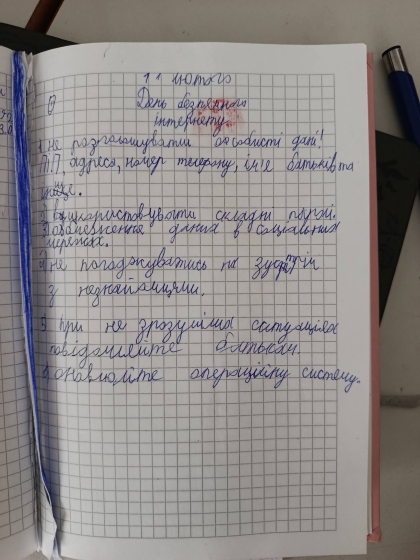 11 лютого
День безпечного
інтернету.
1 не розголошувати особисті дані!
ПІП, адреса, номер телефону, ім'я батьків та
інше.
2 використовувати складні паролі.
3 обмеження даних в соціальних
мережах.
4 не погоджуватись на зустрічи
з незнайомцями.
5 при не зрозумілих ситуаціях
повідомляйте батькам.
6 оновлюйте операційну систему.